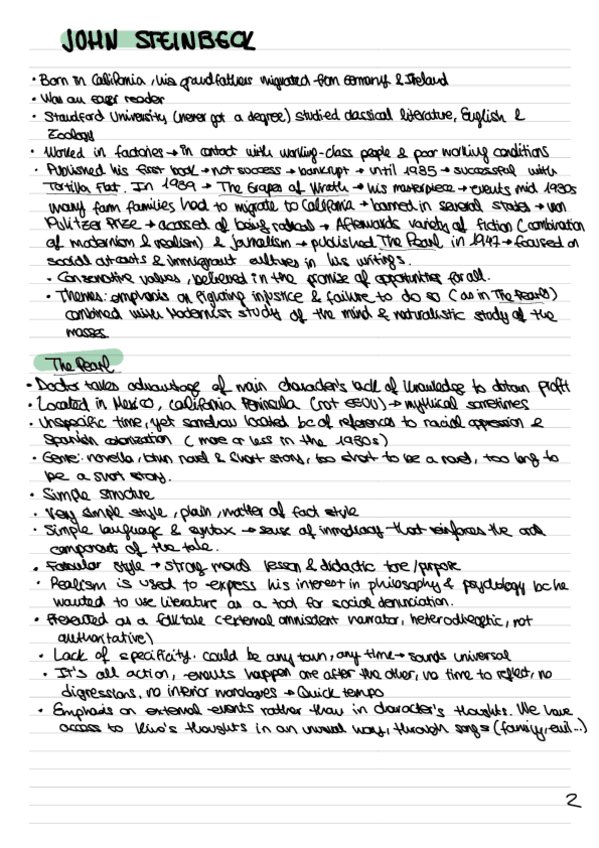 JOHN STEINBECK
• Born in California, his grandfathers migrated from Germany & Ireland
• Was an eager reader
• Standford University (never got a degree) studied classical literature, English &
Zoology
• Worked in factories → in contact with working-class people & poor working conditions
• Published his first book → not success → bankrupt → until 1935 → successful with
Tortilla Flat. In 1939 → The Grapes of Wrath → his masterpiece → events mid 1930s
many farm families had to migrate to California → banned in several states → won
Pulitzer Prize → accused of being radical → Afterwards variety of fiction (combination
of modernism & realism) & journalism → published The Pearl in 1947 → focused on
social outcasts & immigrant cultures in his writings.
• Conservative values, believed in the promise of opportunities for all.
• Themes: emphasis on fighting injustice & failure to do so (as in The Pearl)
combined with Modernist study of the mind & naturalistic study of the
masses.
The Pearl
• Doctor takes advantage of main character's lack of knowledge to obtain profit
• Located in Mexico, California Peninsula (not EEUU) → mythical sometimes
• Unspecific time, yet somehow located bc of references to racial oppression &
Spanish colonization (more or less in the 1930s)
• Genre: novella, btwn novel & short story, too short to be a novel, too long to
be a short story.
• Simple structure
• Very simple style, plain, matter of fact style
• Simple language & syntax → sense of immediacy that reinforces the oral
component of the tale.
• Fabular style → strong moral lesson & didactic tone/purpose
• Realism is used to express his interest in philosophy & psychology bc he
wanted to use literature as a tool for social denunciation.
• Presented as a folktale (external omniscient narrator, heterodiegetic, not
authoritative)
• Lack of specificity. could be any town, any time → sounds universal
• It's all action, events happen one after the other, no time to reflect, no
digressions, no interior monologues → Quick tempo
• Emphasis on external events rather than in character's thoughts. We have
access to Kino's thoughts in an unusual way, through songs (family, evil...)
2